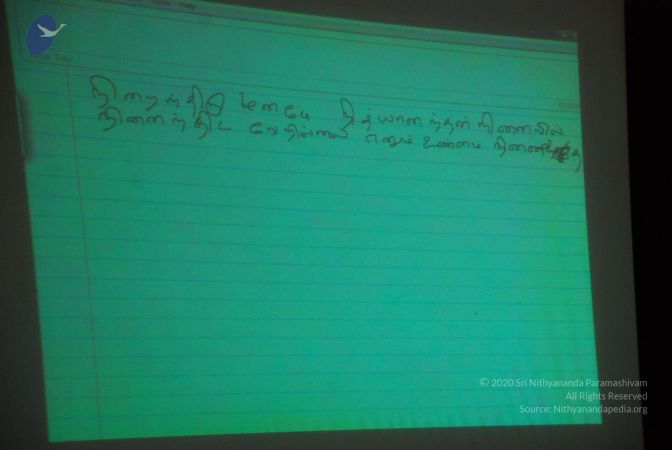 நிறைந்திடு மனமே நித்யானந்தன் நினைவில்
நினைந்திட வேறில்லை எனும் உண்மை
© 2020 Sri Nithyananda Paramashivam
All Rights Reserved
Source: Nithyanandapedia.org